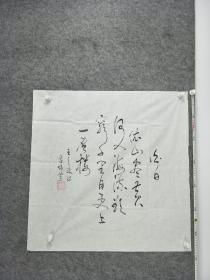 白日
依山盡黄
河入海流欲
窮千里目更上
一層樓